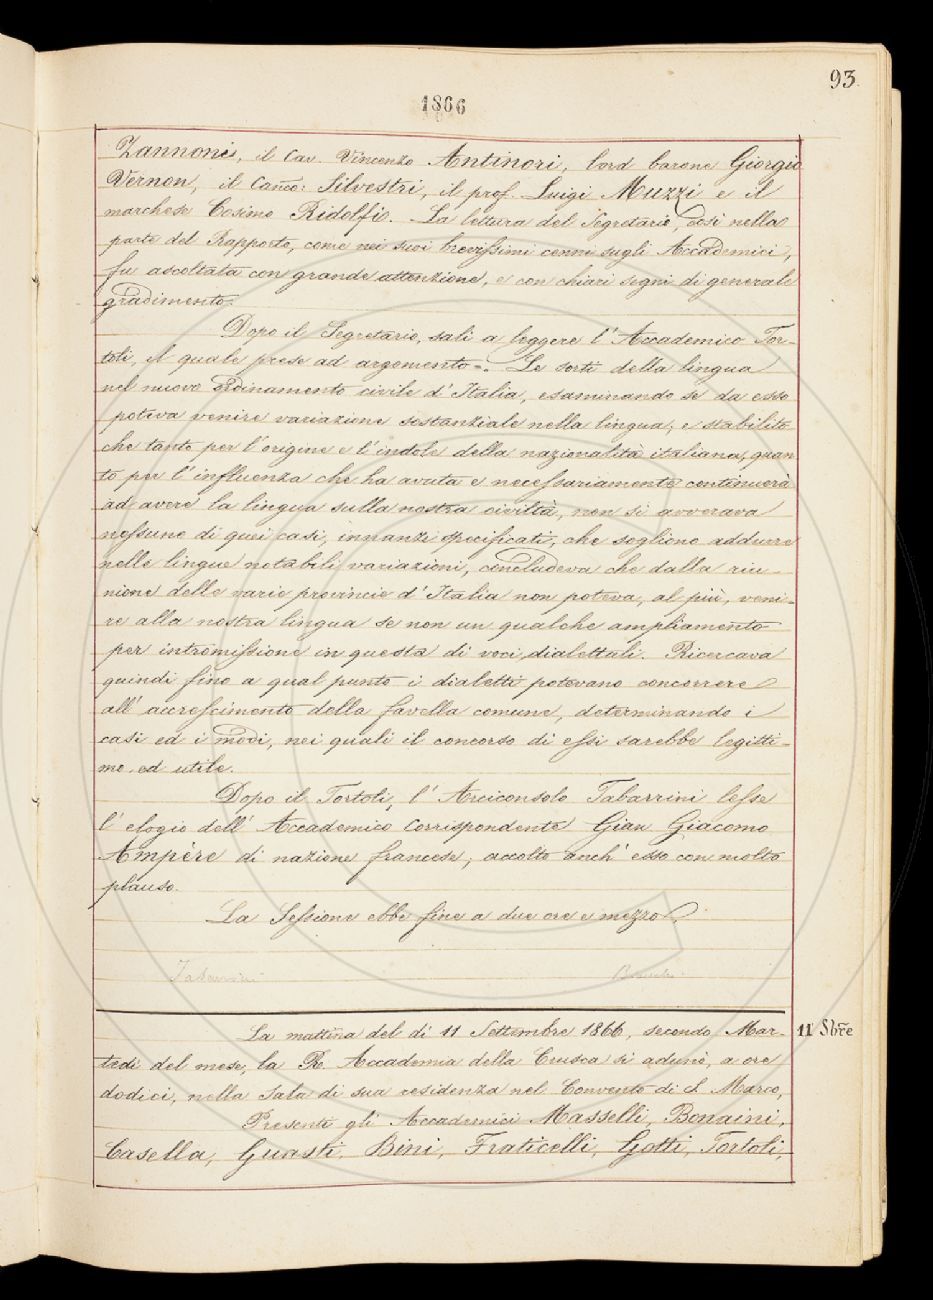 93.
1866
Zannoni, il Cav. Vincenzo Antinori, lord barone Giorgio
Vernon, il Canco: Silvestri, il prof. Luigi Muzzi e il
marchese Cosimo Ridolfi. La lettura del Segretario, così nella
parte del Rapporto, come nei suoi brevissimi cenni sugli Accademici,
fu ascoltata con grande attenzione, e con chiari segni di generale
gradimento.
Dopo il Segretario, salì a leggere l'Accademico Tor-
toli, il quale prese ad argomento =. Le sorti della lingua
nel nuovo ordinamento civile d'Italia, esaminando se da esso
poteva venire variazione sostanziale nella lingua; e stabilito
che tanto per l'origine e l'indole della nazionalità italiana, quan
to per l'influenza che ha avuta e necessariamente continuerà
ad avere la lingua sulla nostra civiltà, non si avverava
nessuno di quei casi, innanzi specificati, che sogliono addurre
nelle lingue notabili variazioni, concludeva che dalla riu-
nione delle varie provincie d'Italia non poteva, al più, veni-
re alla nostra lingua se non un qualche ampliamento
per intromissione in questa di voci dialettali. Ricercava
quindi fino a qual punto i dialetti potevano concorrere
all'accrescimento della favella comune, determinando i
casi ed i modi, nei quali il concorso di essi sarebbe legitti-
mo ed utile.
Dopo il Tortoli, l'Arciconsolo Tabarrini lesse
l'elogio dell'Accademico corrispondente Gian Giacomo
Ampère di nazione francese; accolto anch'esso con molto
plauso.
La Sessione ebbe fine a due ore e mezzo.
Tabarrini
La mattina del dì 11 Settembre 1866, secondo Mar-
11 Sbre
tedì del mese, la R. Accademia della Crusca si adunò, a ore
dodici, nella Sala di sua residenza nel Convento di S. Marco,
Presenti gli Accademici Masselli, Bonaini,
Casella, Guasti, Bini, Fraticelli, Gotti, Tortoli,